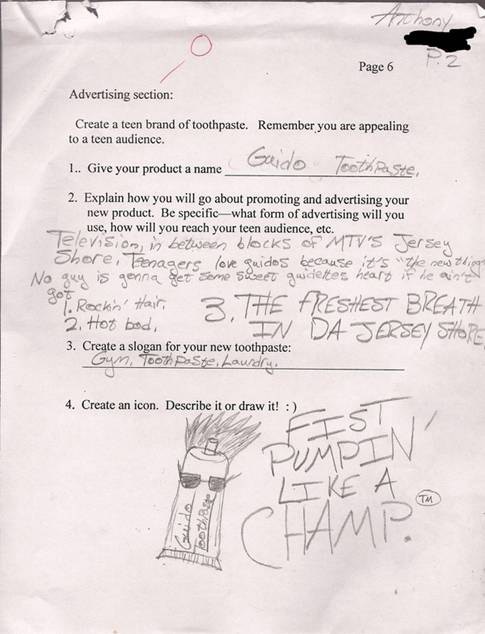 Anthony
P. 2
Page 6
Advertising section:
Create a teen brand of toothpaste. Remember you are appealing
to a teen audience.
1.. Give your product a name Guido ToothPaste.
2. Explain how you will go about promoting and advertising your
new product. Be specific—what form of advertising will you
use, how will you reach your teen audience, etc.
Television, in between blocks of MTV'S Jersey
Shore. Teenagers love guidos because it's "the new thing"
No guy is gonna get some sweet guidettes heart if he ain't
got
1. Rockin' Hair.
2. Hot bod.
3. THE FRESHEST BREATH
IN DA JERSEY SHORE
3. Create a slogan for your new toothpaste:
Gym, ToothPaste, Laundry.
4. Create an icon. Describe it or draw it! : )
FIST
PUMPIN'
LIKE A
CHAMP.
TM
Guido
ToothPaste